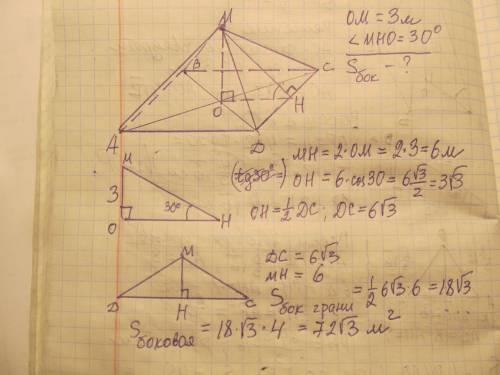 M
B
C
O
H
A
D
OM = 3м
∠MHO = 30°
Sбок - ?
M
3
30°
O
H
MH = 2·OM = 2·3 = 6м
(tg30° =) OH = 6·cos30 = 6√3/2 = 3√3
OH = 1/2 DC; DC = 6√3
M
D
H
C
DC = 6√3
MH = 6
Sбок грани = 1/2 6√3·6 = 18√3
Sбоковая = 18·√3·4 = 72√3 м²